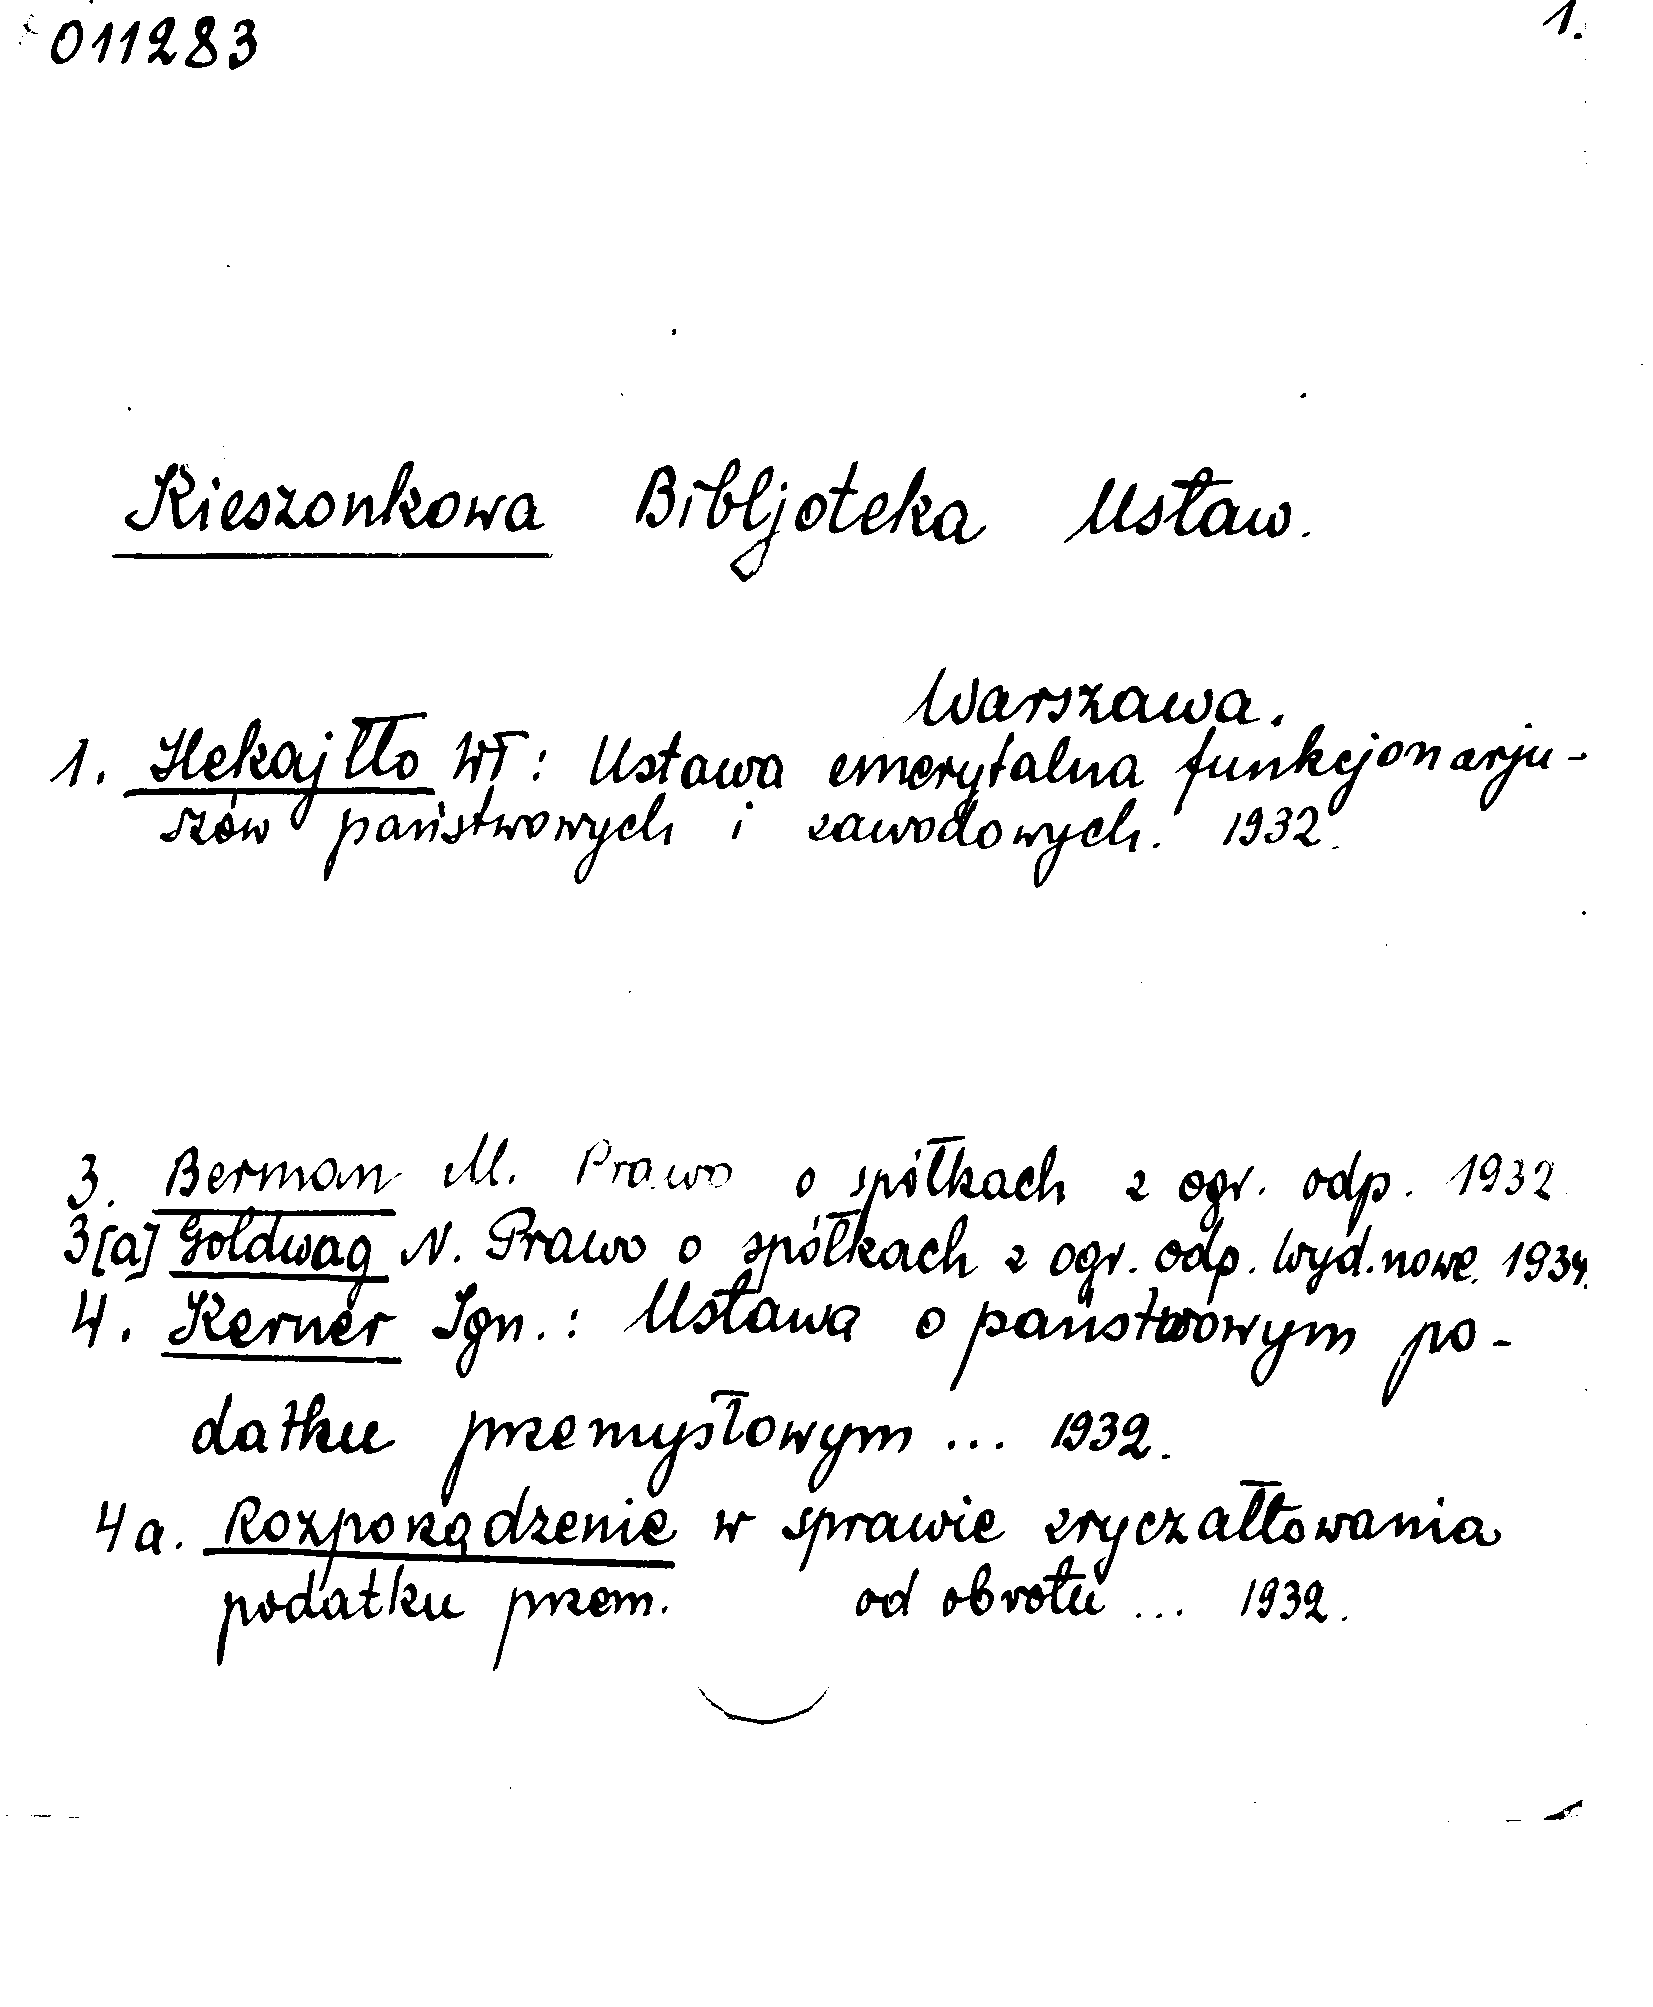 011283
1.
Kieszonkowa Bibljoteka Ustaw.
Warszawa.
1. Hekajłło Wł: Ustawa emerytalna funkcjonarju-
szów państwowych i zawodowych. 1932.
3. Berman M. Prawo o spółkach z ogr. odp. 1932
3[a] Goldwag N. Prawo o spółkach z ogr. odp. Wyd. nowe. 1934.
4. Kerner Ign.: Ustawa o państwowym po-
datku przemysłowym ... 1932.
4a. Rozporządzenie w sprawie zryczałtowania
podatku przem. od obrotu ... 1932.